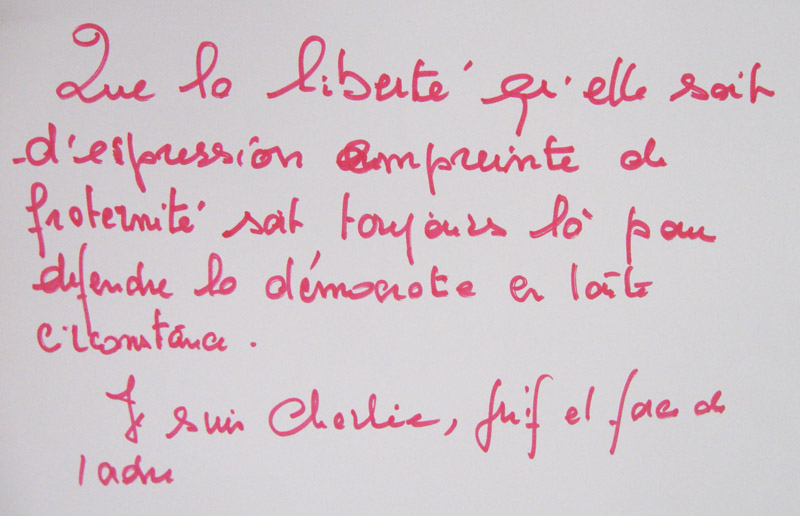 Que la liberté qu'elle soit
d'expression empreinte de
fraternité soit toujours là pour
défendre la démocrate en toute
circonstance.
Je suis Charlie, juif et
l